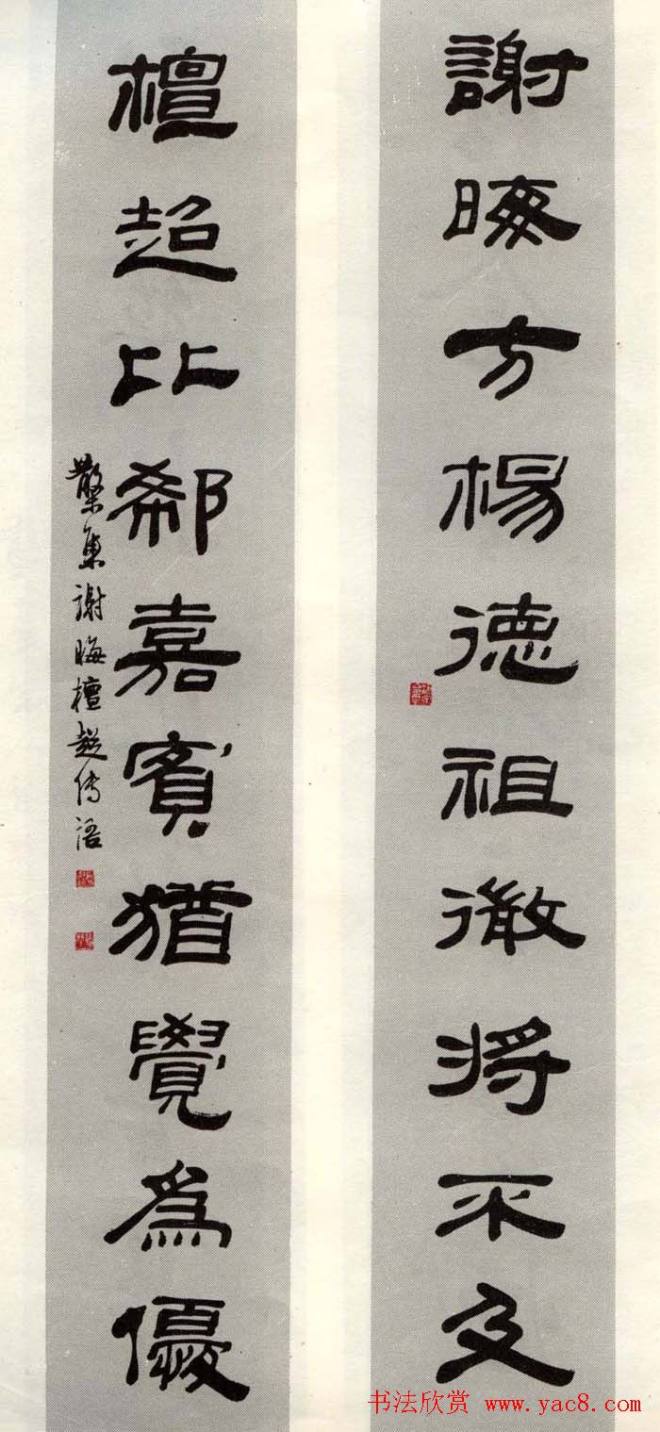 謝晦方楊德祖微將不及
檀超比郗嘉賓猶覺為優
集謝晦檀超傳語
书法欣赏 www.yac8.com